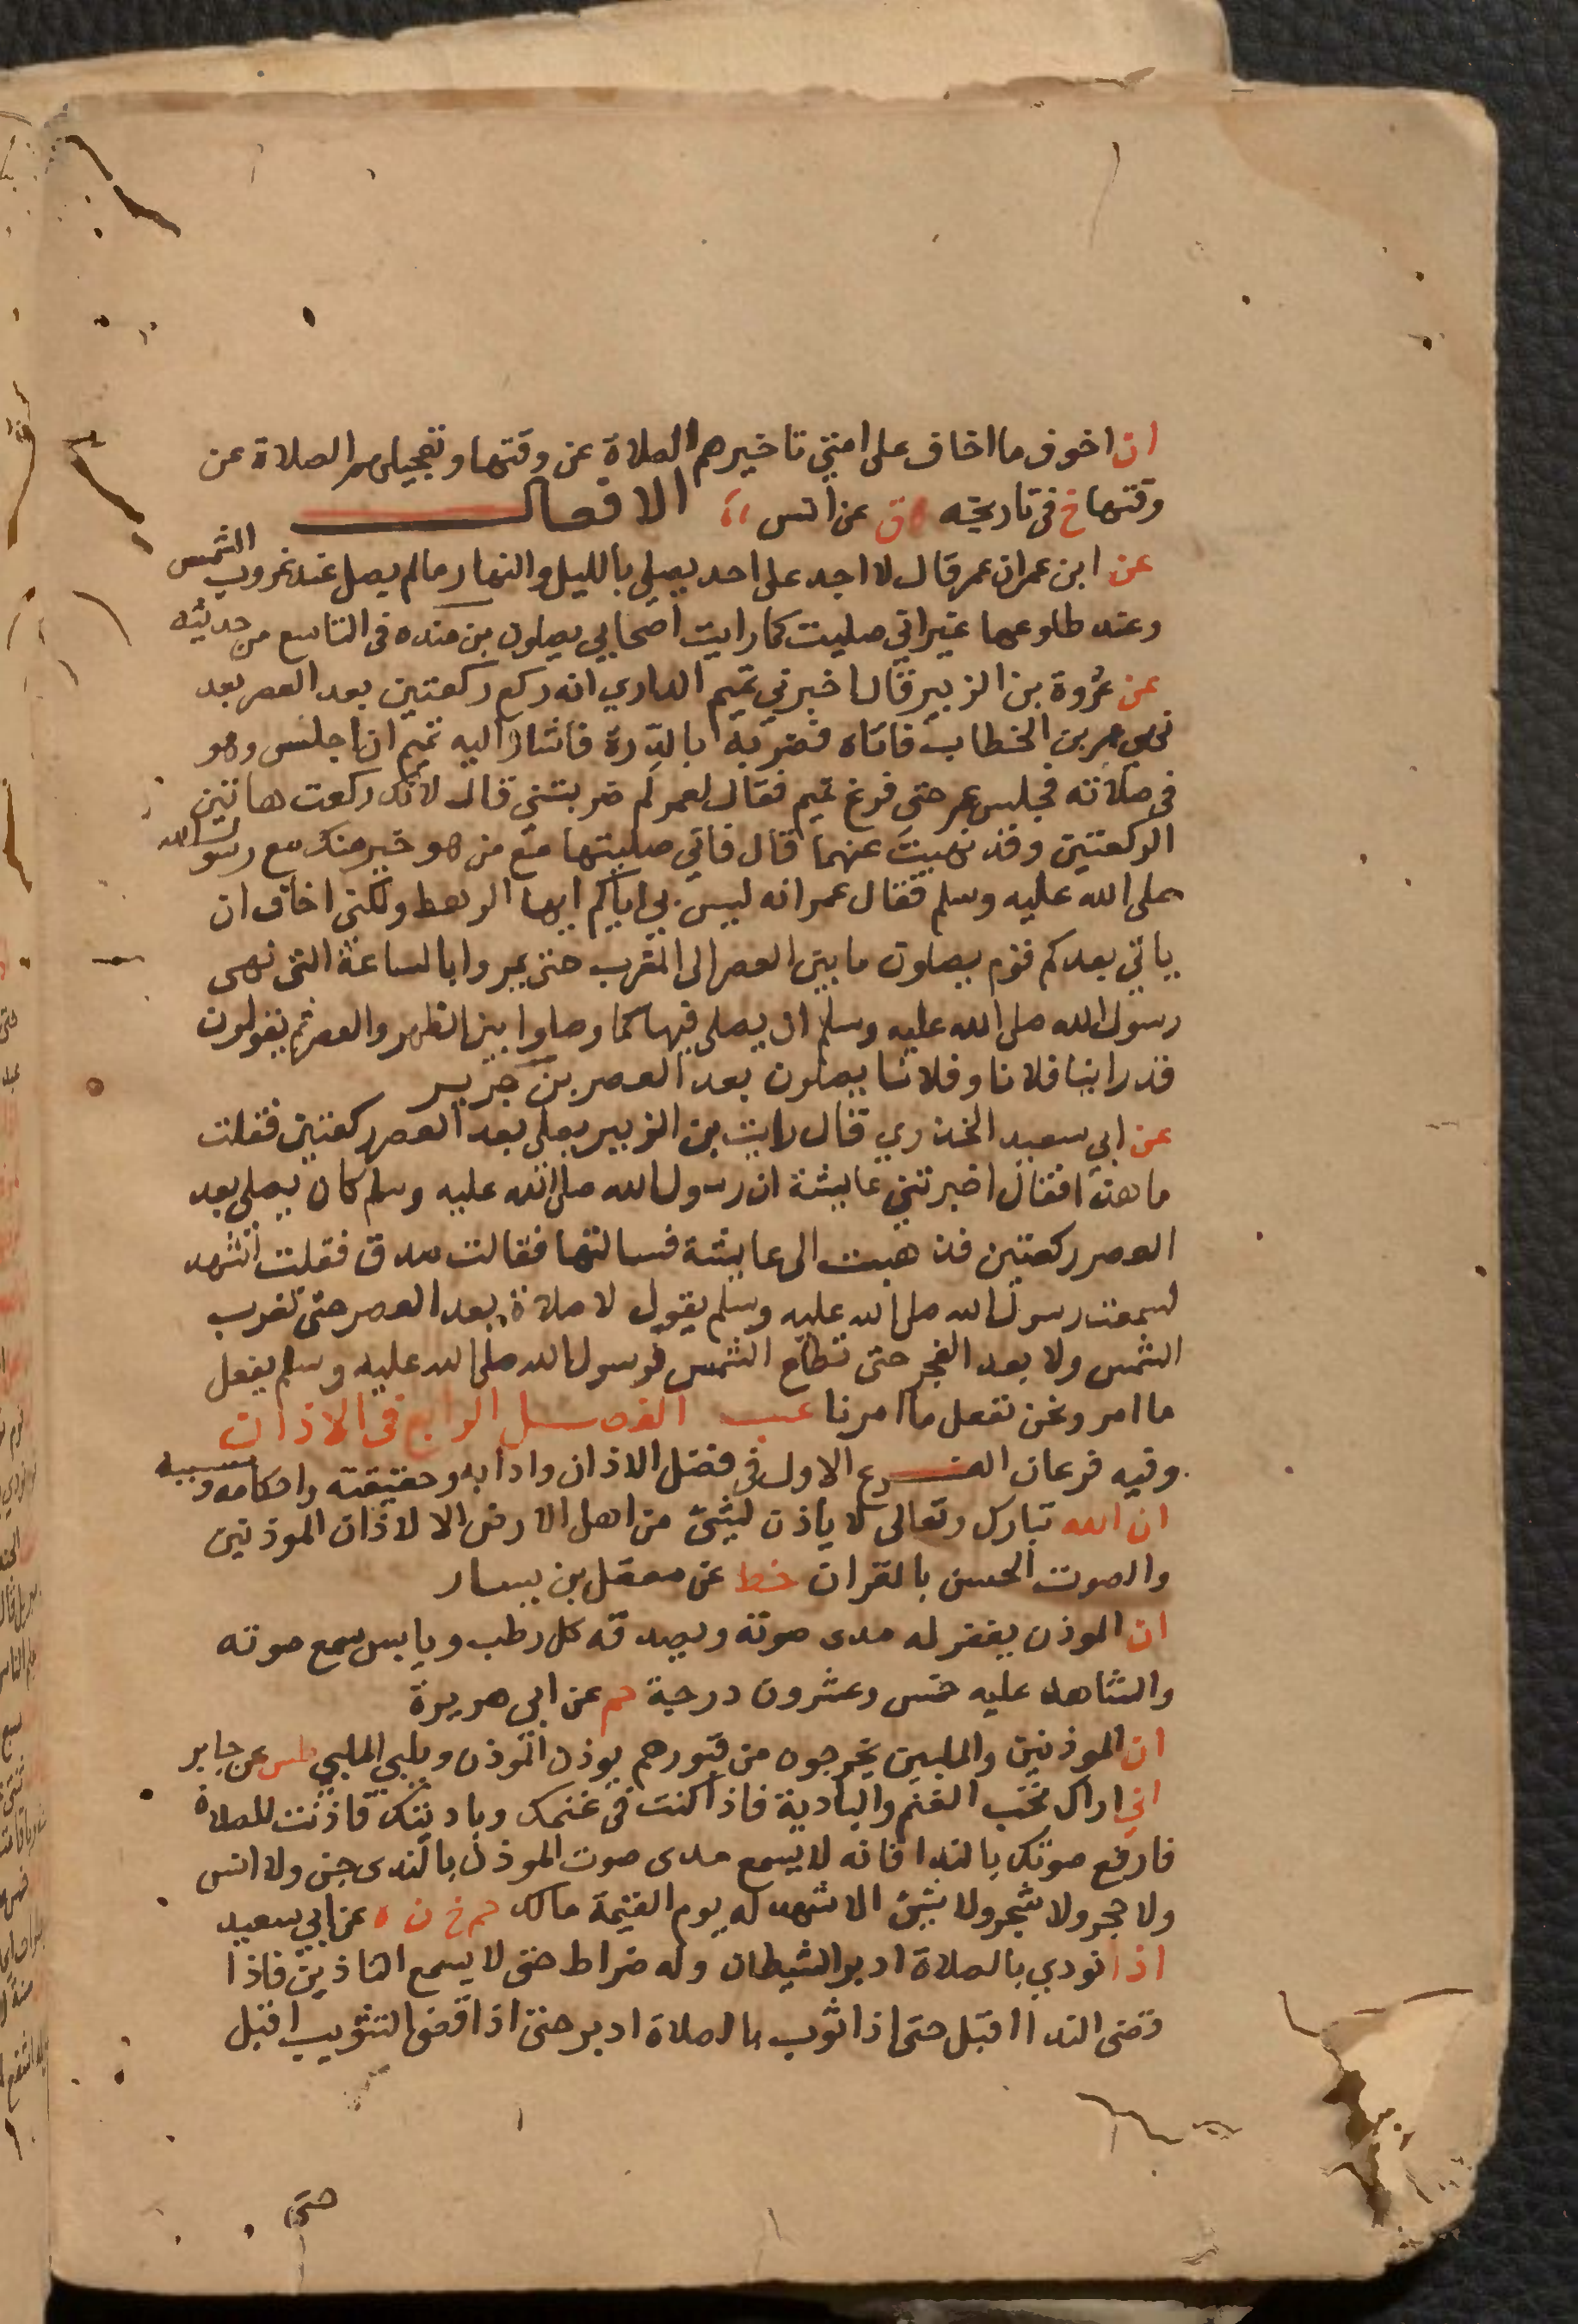 ان اخوف ما اخاف على امتي تاخيرهم الصلاة عن وقتها وتعجيلهم الصلاة عن
وقتها خ في تاريخه ق عن انس الافعال
عن ابن عمر ان عمر قال لا اجد على احد يصلي بالليل والنهار ما لم يصل عند غروب الشمس
وعند طلوعها غير اني صليت كما رايت اصحابي يصلون بن منده في التاسع من حديثه
عن عروة بن الزبير قال اخبرني تميم الداري انه ركع ركعتين بعد العصر بعد
نهي عمر بن الخطاب فاتاه فضربه بالدِّرة فاشار اليه تميم ان اجلس وهو
في صلاته فجلس عمر حتى فرغ تميم فقال لعمر لم ضربتني قال لانك ركعت هاتين
الركعتين وقد نهيت عنهما قال فاني صليتها مع من هو خير منك مع رسول الله
صلى الله عليه وسلم فقال عمر انه ليس بي اياكم ايها الرهط ولكني اخاف ان
ياتي بعدكم قوم يصلون ما بين العصر الى المغرب حتى يمروا بالساعة التي نهى
رسول الله صلى الله عليه وسلم ان يصلى فيها كما وصلوا بين الظهر والعصر ثم يقولون
قد راينا فلانا وفلانا يصلون بعد العصر بن جرير
عن ابي سعيد الخدري قال رايت بن الزبير يصلي بعد العصر ركعتين فقلت
ما هذا فقال اخبرتني عايشة ان رسول الله صلى الله عليه وسلم كان يصلي بعد
العصر ركعتين فذهبت الى عايشة فسالتها فقالت صدق فقلت اشهد
لسمعت رسول الله صلى الله عليه وسلم يقول لا صلاة بعد العصر حتى تغرب
الشمس ولا بعد الفجر حتى تطلع الشمس فرسول الله صلى الله عليه وسلم يفعل
ما امر ونحن نفعل ما امرنا عب الفصل الرابع في الاذان
وفيه فرعان الفرع الاول في فضل الاذان وادابه وحقيقته واحكامه وسببه
ان الله تبارك وتعالى لا ياذن لشيئ من اهل الارض الا لاذان الموذنين
والصوت الحسن بالقران خط عن معقل بن يسار
ان الموذن يغفر له مدى صوته ويصدقه كل رطب ويابس سمع صوته
والشاهد عليه خمس وعشرون درجة حم عن ابي هريرة
ان الموذنين والملبين يخرجون من قبورهم يوذن الموذن ويلبي الملبي طس عن جابر
اني اراك تحب الغنم والبادية فاذا كنت في غنمك وباديتك فاذنت للصلاة
فارفع صوتك بالندا فانه لا يسمع مدى صوت الموذن بالندى جن ولا انس
ولا حجر ولا شجر ولا شيئ الا شهد له يوم القيمة مالك حم خ ن ه عن ابي سعيد
اذا نودي بالصلاة ادبر الشيطان وله ضراط حتى لا يسمع التاذين فاذا
قضى الندا اقبل حتى اذا ثوب بالصلاة ادبر حتى اذا قضى التثويب اقبل
حتى